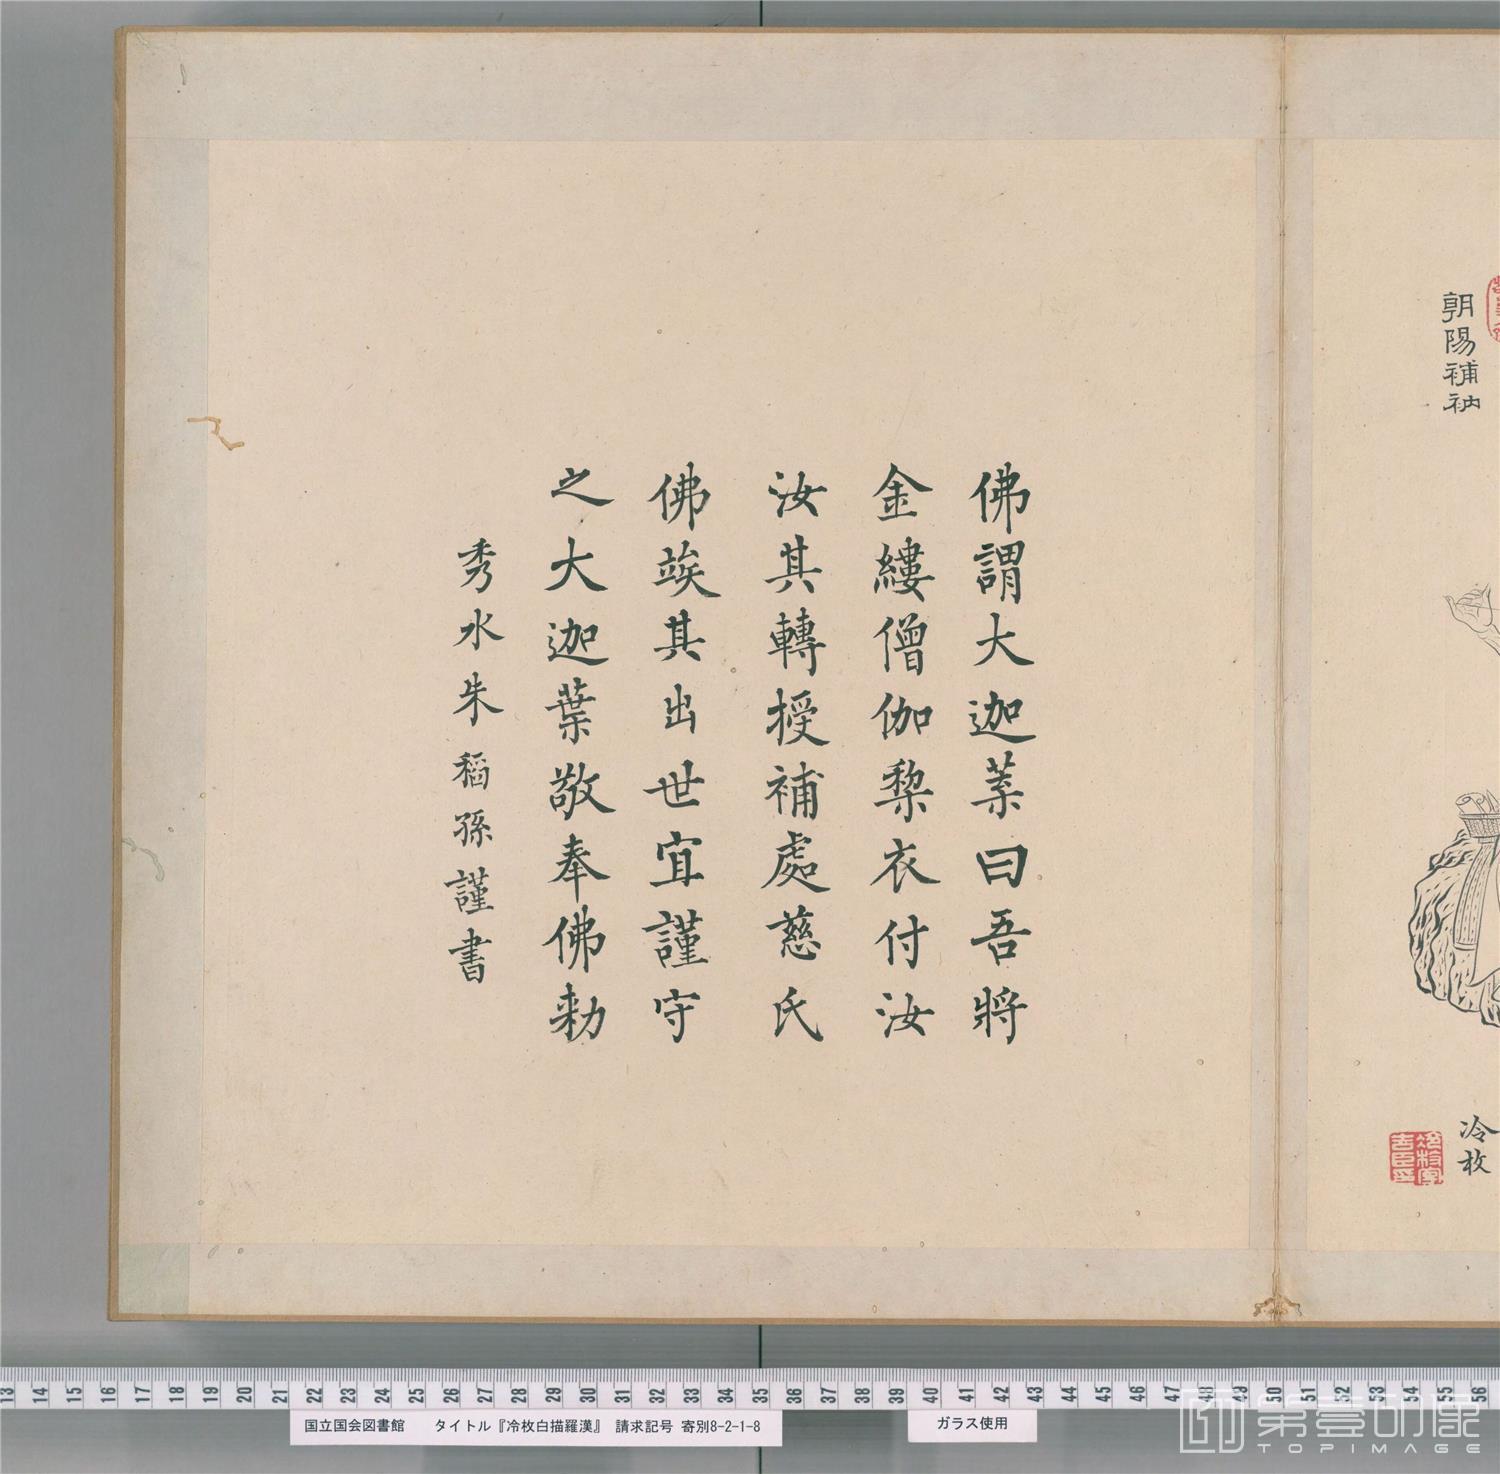 朝陽補衲
冷枚
佛謂大迦葉曰吾將
金縷僧伽棃衣付汝
汝其轉授補處慈氏
佛竢其出世宜謹守
之大迦葉敬奉佛勅
秀水朱稻孫謹書
13 14 15 16 17 18 19 20 21 22 23 24 25 26 27 28 29 30 31 32 33 34 35 36 37 38 39 40 41 42 43 44 45 46 47 48 49 50 51 52 53 54 55 56
国立国会図書館 タイトル『冷枚白描羅漢』 請求記号 寄別8-2-1-8
ガラス使用
第壹印像
TOPIMAGE